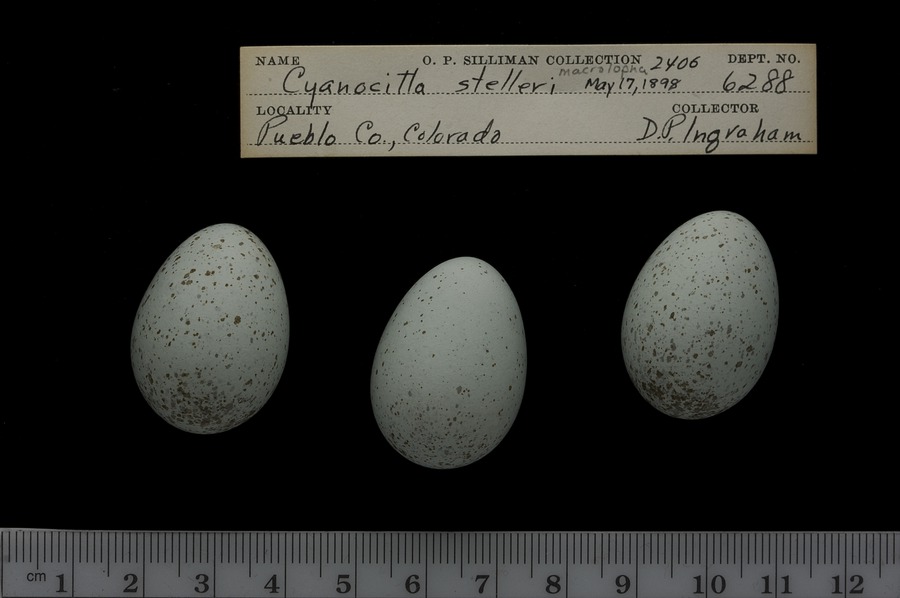 NAME O. P. SILLIMAN COLLECTION 2406 DEPT. NO.
Cyanocitta stelleri macrolopha May 17, 1898 6288
LOCALITY COLLECTOR
Pueblo Co., Colorado D.P. Ingraham
cm 1 2 3 4 5 6 7 8 9 10 11 12